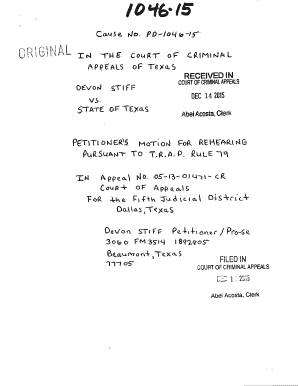 1046-15
Cause No. PD-1046-15
ORIGINAL
IN THE COURT OF CRIMINAL
APPEALS OF TEXAS
RECEIVED IN
COURT OF CRIMINAL APPEALS
DEC 14 2015
Abel Acosta, Clerk
DEVON STIFF
VS.
STATE OF TEXAS
PETITIONER'S MOTION FOR REHEARING
PURSUANT TO T.R.A.P. RULE 79
IN Appeal NO. 05-13-01471-CR
COURT OF Appeals
FOR the Fifth Judicial District
Dallas, Texas
Devon STIFF Petitioner/Pro-se
3060 FM 3514 1892005
Beaumont, Texas
77705
FILED IN
COURT OF CRIMINAL APPEALS
2015
Abel Acosta, Clerk